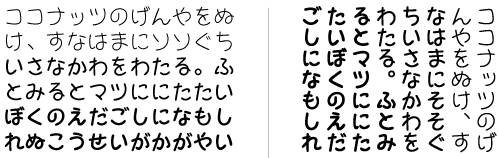 ココナッツのげんやをぬ
け、すなはまにそそぐち
いさなかわをわたる。ふ
とみるとマツににたたい
ぼくのえだごしになもし
れぬこうせいがかがやい
ココナッツのげ
んやをぬけ、す
なはまにそそぐ
ちいさなかわを
わたる。ふとみ
るとマツににた
たいぼくのえだ
ごしになもしれ